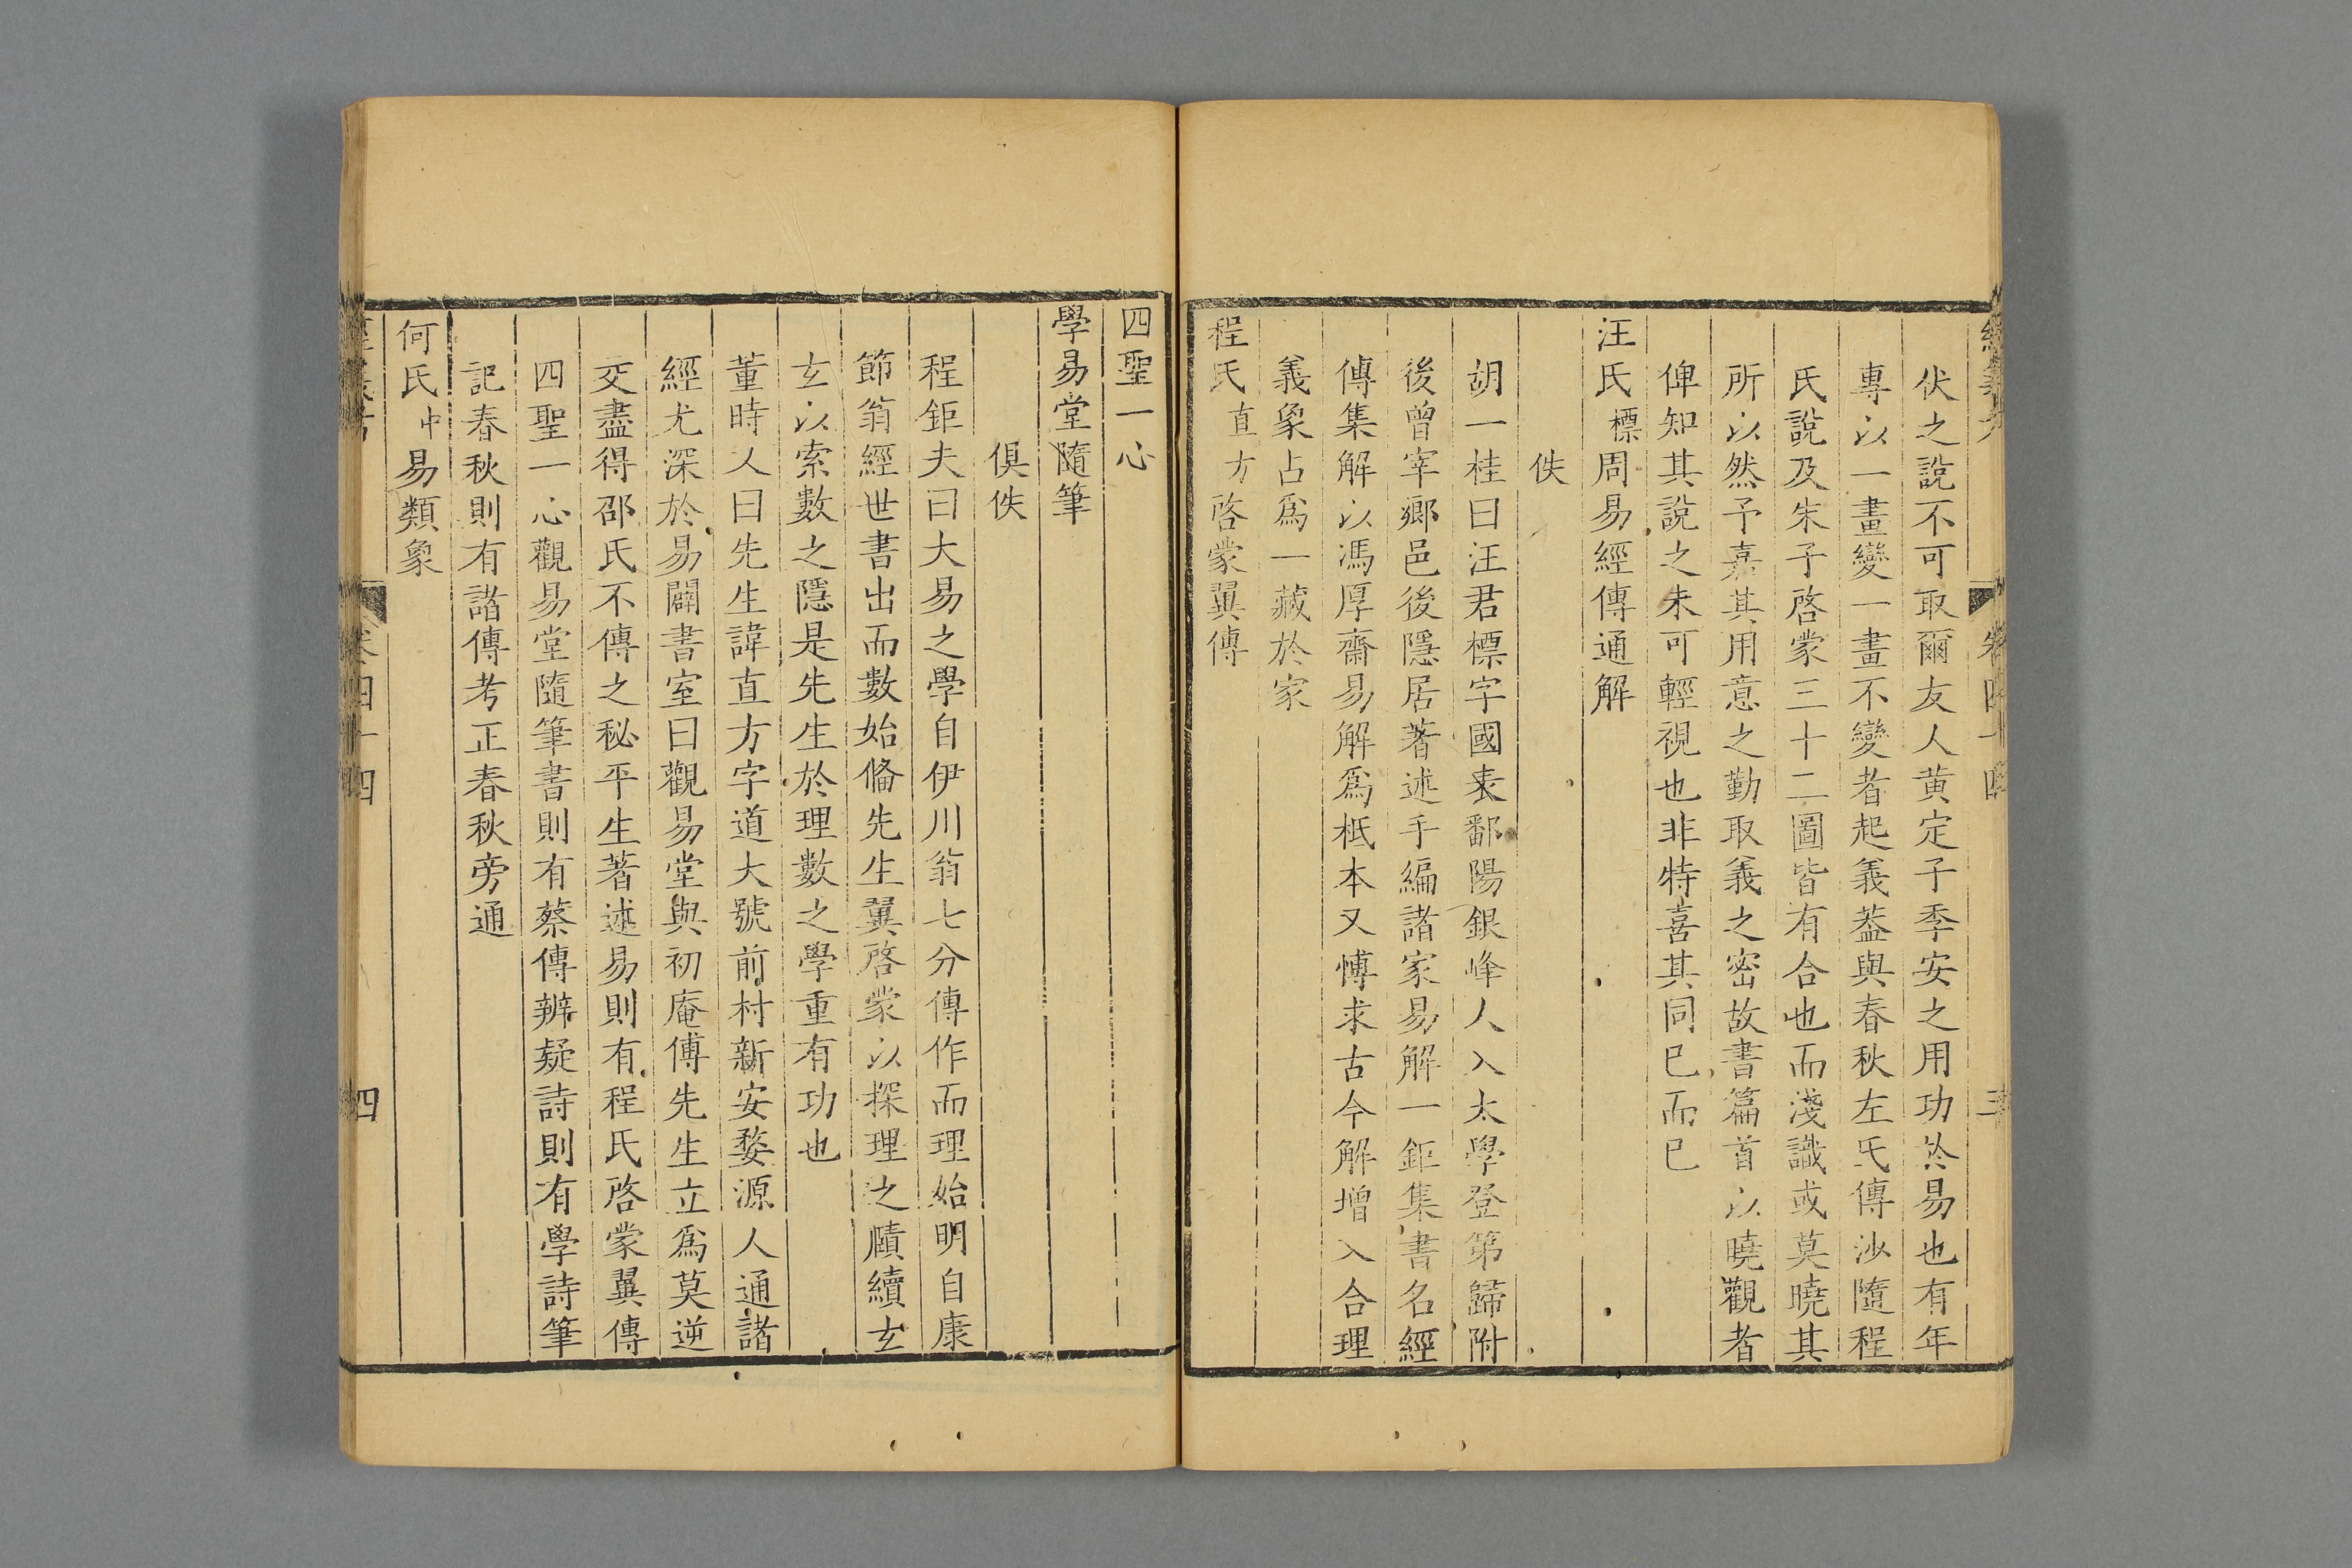 伏之說不可取爾友人黄定子季安之用功於易也有年
專以一畫變一畫不變者起義葢與春秋左氏傳沙隨程
氏說及朱子啓蒙三十二圖皆有合也而淺識或莫曉其
所以然予嘉其用意之勤取義之密故書篇首以曉觀者
俾知其說之未可輕視也非特喜其同已而已
汪氏標周易經傳通解
佚
胡一桂曰汪君標字國表鄱陽銀峰人入太學登第歸附
後曾宰鄉邑後隱居著述手編諸家易解一鉅集書名經
傳集解以馮厚齋易解爲柢本又博求古今解增入合理
義象占爲一藏於家
程氏直方啓蒙翼傳
四聖一心
學易堂隨筆
俱佚
程鉅夫曰大易之學自伊川翁七分傳作而理始明自康
節翁經世書出而數始俻先生翼啓蒙以探理之賾續玄
玄以索數之隱是先生於理數之學重有功也
董時乂曰先生諱直方字道大號前村新安婺源人通諸
經尤深於易闢書室曰觀易堂與初庵傅先生立爲莫逆
交盡得邵氏不傳之秘平生著述易則有程氏啓蒙翼傳
四聖一心觀易堂隨筆書則有蔡傳辨疑詩則有學詩筆
記春秋則有諸傳考正春秋旁通
何氏中易類象
卷四十四
四